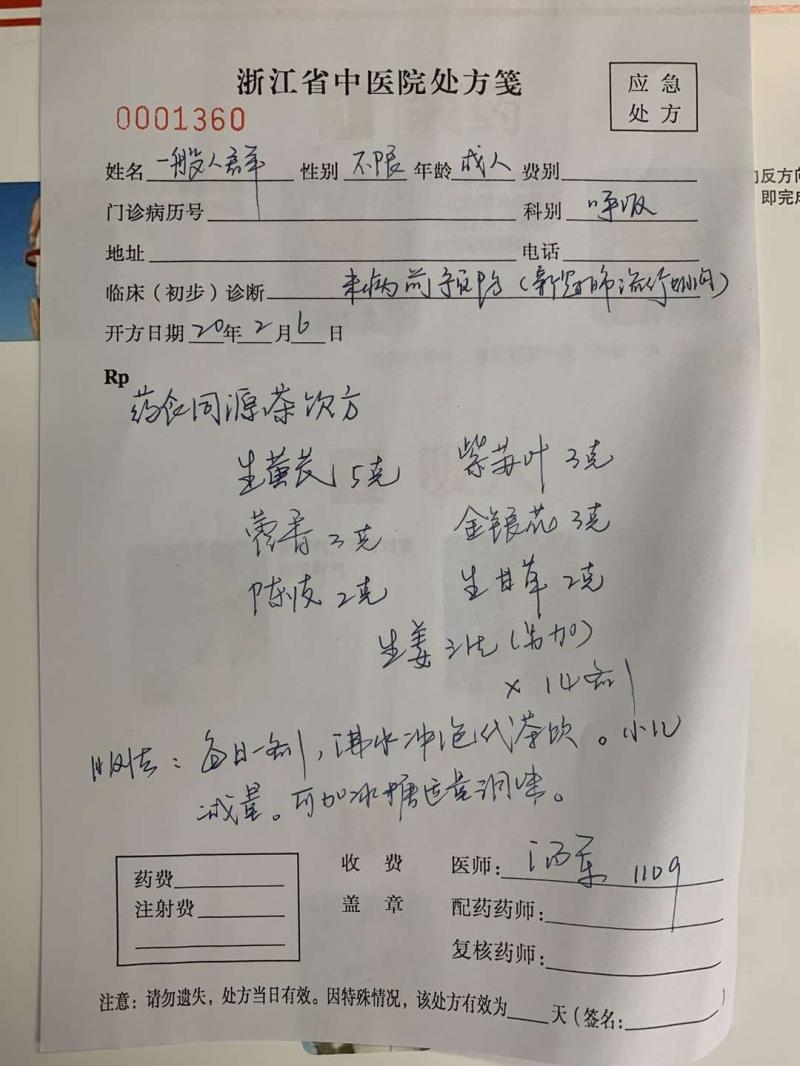 浙江省中医院处方笺
应急
处方
0001360
姓名 一般人群 性别 不限 年龄 成人 费别
门诊病历号 科别 呼吸
地址 电话
临床（初步）诊断 未病前预防（新冠肺流行期间）
开方日期 20年2月6日
Rp
药食同源茶饮方
生黄芪 5克 紫苏叶 3克
藿香 3克 金银花 3克
陈皮 2克 生甘草 2克
生姜 2片（另加）
× 14剂
用法：每日一剂，沸水冲泡代茶饮。小儿
减量。可加冰糖适量调味。
药费
注射费
收费
盖章
医师： 1109
配药药师：
复核药师：
注意：请勿遗失，处方当日有效。因特殊情况，该处方有效为 天（签名： ）
的反方向
即完成